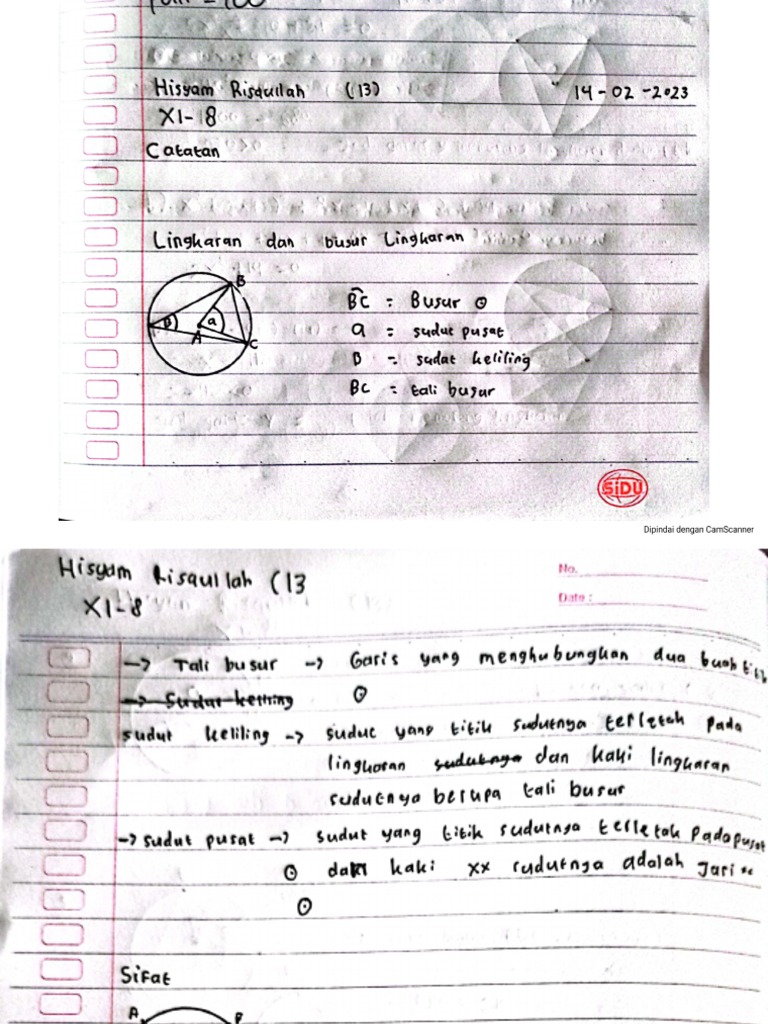 Hisyam Risqullah (13) 14-02-2023
XI-18
Catatan
Lingkaran dan busur Lingkaran
B
a
A
C
BC = Busur ⊙
a = sudut pusat
B = sudat keliling
BC = tali busur
SiDU
Dipindai dengan CamScanner
Hisyam Risqullah (13
XI-8
No.
Date :
→ Tali busur → Garis yang menghubungkan dua buah titik
→ Sudut keliling ⊙
sudut keliling → sudut yang titik sudutnya terletak pada
lingkaran sudutnya dan kaki lingkaran
sudutnya berupa tali busur
→ sudut pusat → sudut yang titik sudutnya terletak pada pusat
⊙ dan kaki xx sudutnya adalah jari xx
⊙
Sifat
A